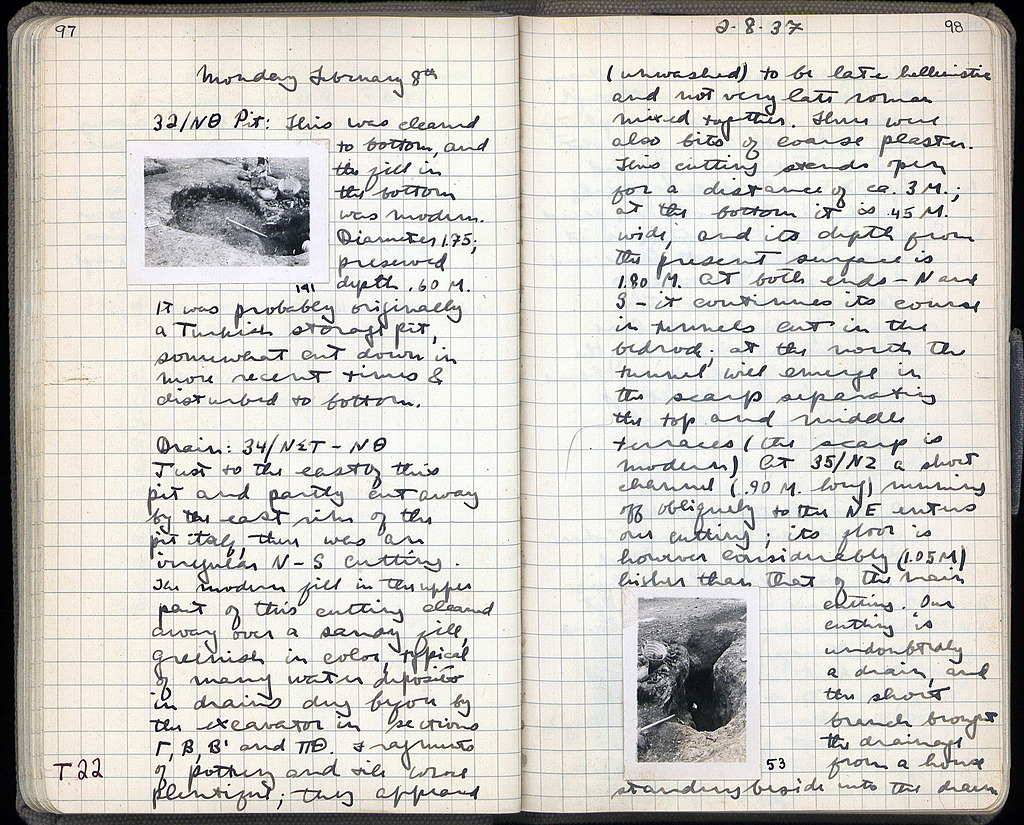 97
Monday February 8th
32/ΝΘ Pit: This was cleaned
to bottom, and
the fill in
the bottom
was modern.
Diameter 1.75;
preserved
depth .60 M.
191
It was probably originally
a Turkish storage pit,
somewhat cut down in
more recent times &
disturbed to bottom.
Drain: 34/ΝΣΤ - ΝΘ
Just to the east of this
pit and partly cut away
by the east rim of the
pit itself, there was an
irregular N-S cutting.
The modern fill in the upper
part of this cutting cleaned
away over a sandy fill,
greenish in color, typical
of many water deposits
in drains dug by
the excavator in sections
Γ, Β, Β' and ΠΘ. Fragments
of pottery and tile were
plentiful; they appeared
T 22
2-8-37
98
(unwashed) to be late hellenistic
and not very late roman
mixed together. There were
also bits of coarse plaster.
This cutting stands open
for a distance of ca. 3 M.;
at the bottom it is .45 M.
wide, and its depth from
the present surface is
1.80 M. At both ends - N and
S - it continues its course
in tunnels cut in the
bedrock; at the north the
tunnel will emerge in
the scarp separating
the top and middle
terraces (the scarp is
modern). At 35/ a short
channel (.90 M. long) running
off obliquely to the NE enters
our cutting; its floor is
however considerably (1.05 M)
higher than that of the main
cutting. Our
cutting is
undoubtedly
a drain, and
the short
branch brought
the drainage
from a house
53
standing beside into the drain